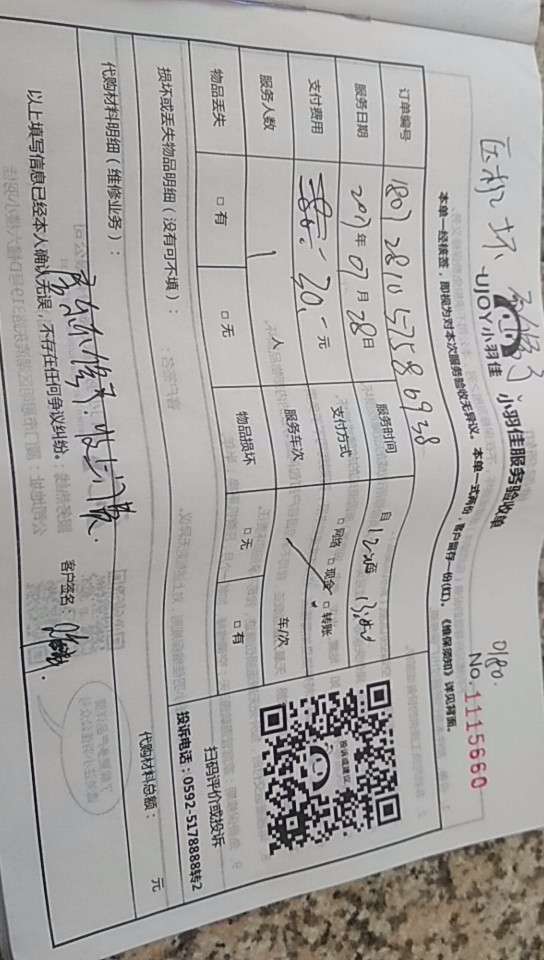 0180.
·UJOY小羽佳 小羽佳服务验收单 No.1115660
本单一经核签，即视为对本次服务验收无异议。本单一式两份，客户留存一份(红)。《维保须知》详见背面。
订单编号 180728105758 6938
服务日期 2017年07月28日 服务时间 自
支付费用 20.-元 支付方式 □网络 □现金 □转账
服务人数 1 人 服务车次 车/次
物品丢失 □有 □无 物品损坏 □无 □有
扫码评价或投诉
投诉电话：0592-5178888转2
投诉或建议
损坏或丢失物品明细（没有可不填）：
代购材料明细（维修业务）： 代购材料总额： 元
以上填写信息已经本人确认无误，不存在任何争议纠纷。 客户签名：